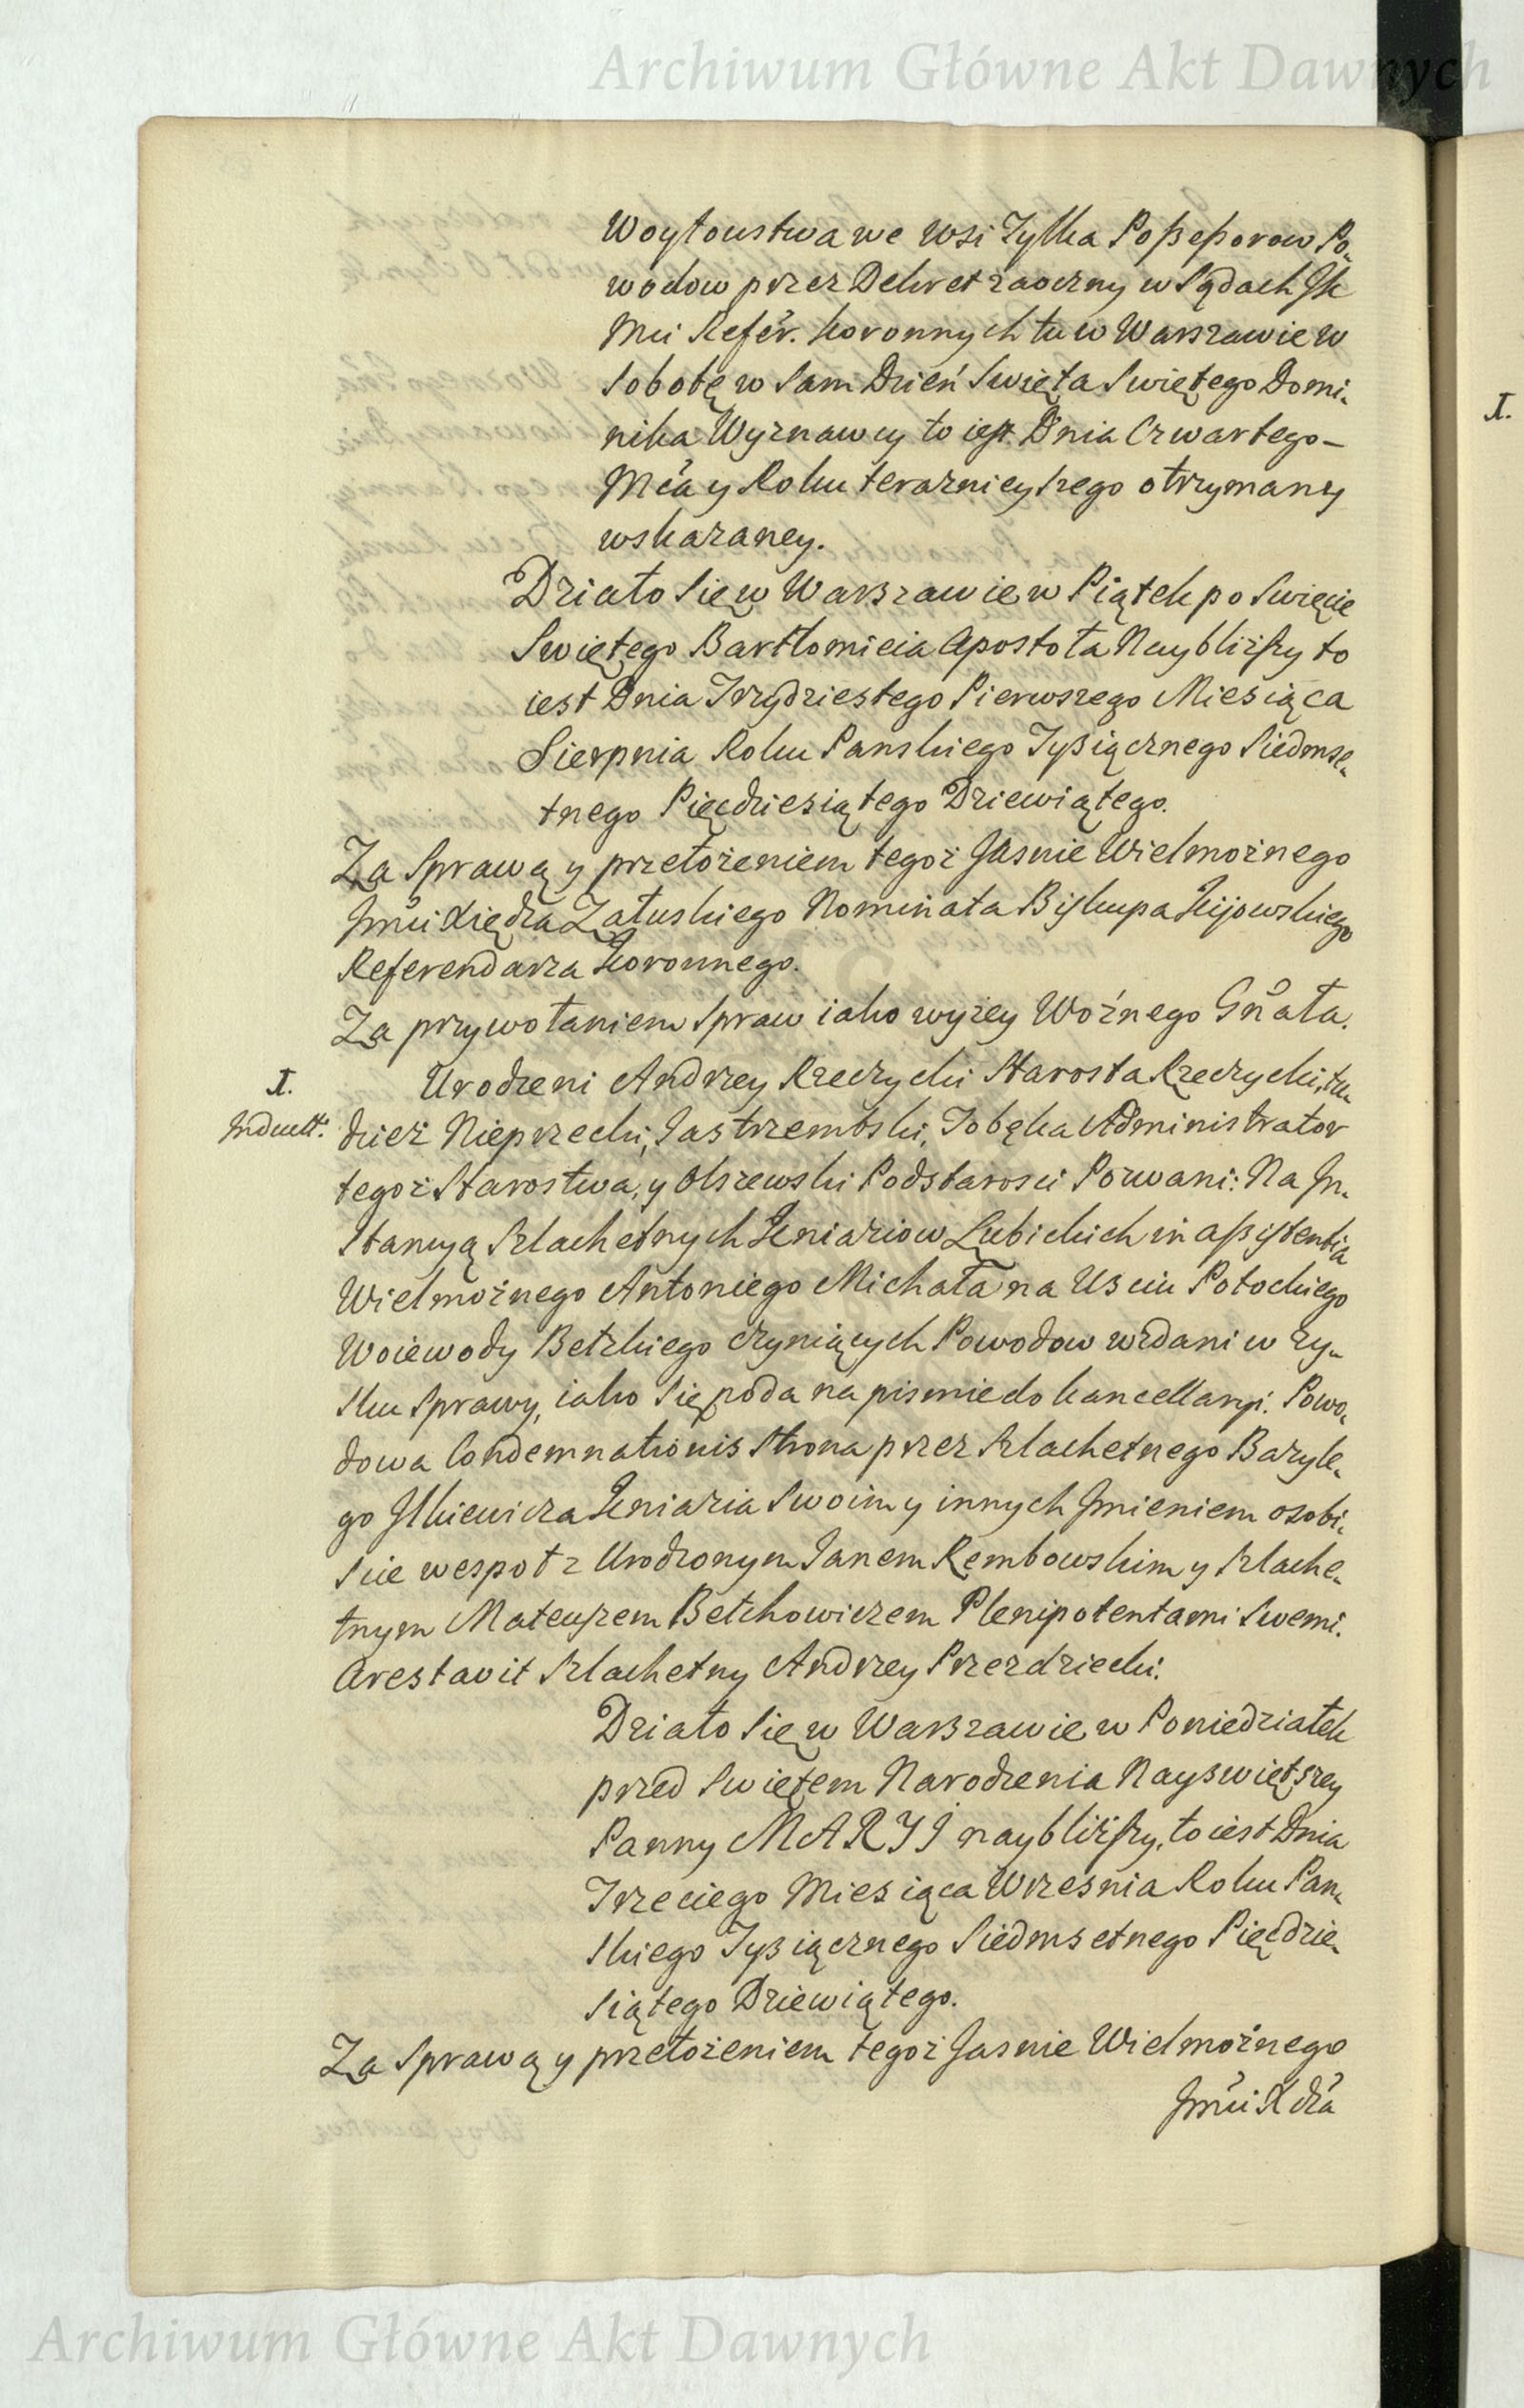 Archiwum Główne Akt Dawnych
Woytowstwa we Wsi Tylka Poßeßorow Po-
wodow przez Dekret zaoczny w Sądach Jch
Mci Refer. koronnych tu w Warszawie w
Sobotę w Sam Dzień Swięta Swiętego Domi-
nika Wyznawcy to iest Dnia Czwartego-
Mca y Roku terazniejszego otrzymany
wskazaney.
Działo Się w Warszawie w Piątek po Swięcie
Swiętego Bartłomieia Apostoła Naybliższy to
iest Dnia Trzydziestego Pierwszego Miesiąca
Sierpnia Roku Panskiego Tysiącznego Siedmse-
tnego Pięcdziesiątego Dziewiątego.
Za Sprawą y przełożeniem tegoż Jasnie Wielmożnego
Jmci Xiędza Załuskiego Nominata Biskupa Kijowskiego
Referendarza Koronnego.
Za przywołaniem Spraw iako wyżey Woźnego Gnała.
I. Urodzeni Andrzey Rzeczycki Starosta Rzeczycki, tu-
Induct. dzież Nieprzecki, Jastrzembski, Tobęka Administrator
tegoż Starostwa, y Olszewski Podstarosci Pozwani: Na In-
Stancyą Szlachetnych Kniaziow Lubickich in aßistentia
Wielmożnego Antoniego Michała na Usciu Potockiego
Woiewody Bełzkiego czyniących Powodow wzdani w zy-
sku Sprawy, iako Się poda na pismie do kancellaryi. Powo-
dowa Condemnationis Strona przez Szlachetnego Bazyle-
go Ilkiewicza Kniazia Swoim y innych Jmieniem osobi-
scie wespoł z Urodzonym Janem Rembowskim y Szlache-
tnym Mateuszem Bełchowiczem Plenipotentami Swemi.
Arestavit Szlachetny Andrzey Przezdziecki.
Działo Się w Warszawie w Poniedziałek
przed Swiętem Narodzenia Nayswiętszey
Panny MARYI naybliższy, to iest Dnia
Trzeciego Miesiąca Wrzesnia Roku Pan-
skiego Tysiącznego Siedmsetnego Pięcdzie-
siątego Dziewiątego.
Za Sprawą y przełożeniem tegoż Jasnie Wielmożnego
Jmci Xdza
I.
Archiwum Główne Akt Dawnych